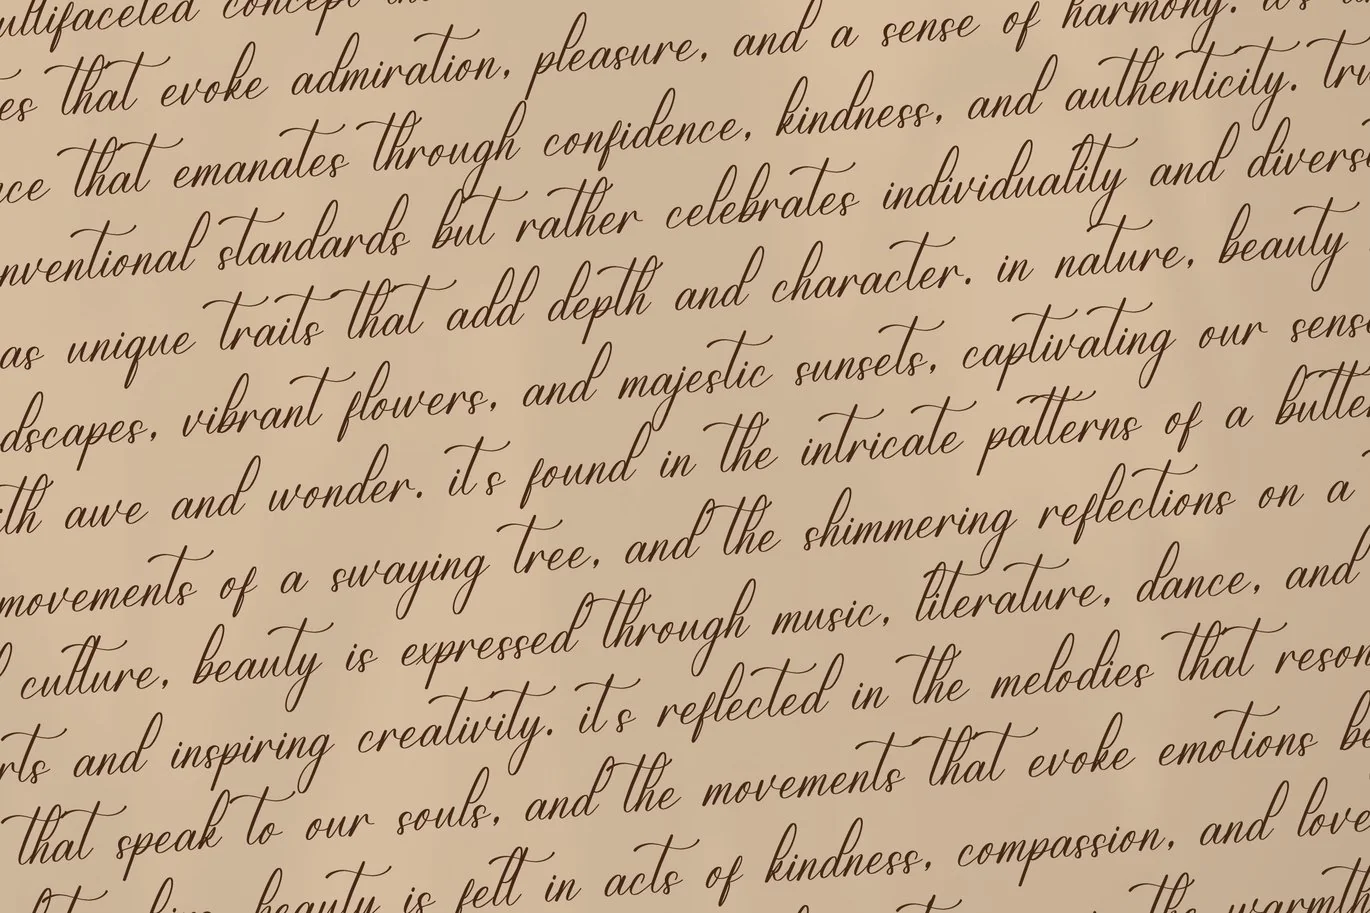 ultifaceted concept
es that evoke admiration, pleasure, and a sense of harmony. it's
ce that emanates through confidence, kindness, and authenticity. tru
nventional standards but rather celebrates individuality and diverse
as unique traits that add depth and character. in nature, beauty
dscapes, vibrant flowers, and majestic sunsets, captivating our sense
ith awe and wonder. it's found in the intricate patterns of a butte
movements of a swaying tree, and the shimmering reflections on a
culture, beauty is expressed through music, literature, dance, and
rts and inspiring creativity. it's reflected in the melodies that reson
that speak to our souls, and the movements that evoke emotions be
beauty is felt in acts of kindness, compassion, and love
the warmth